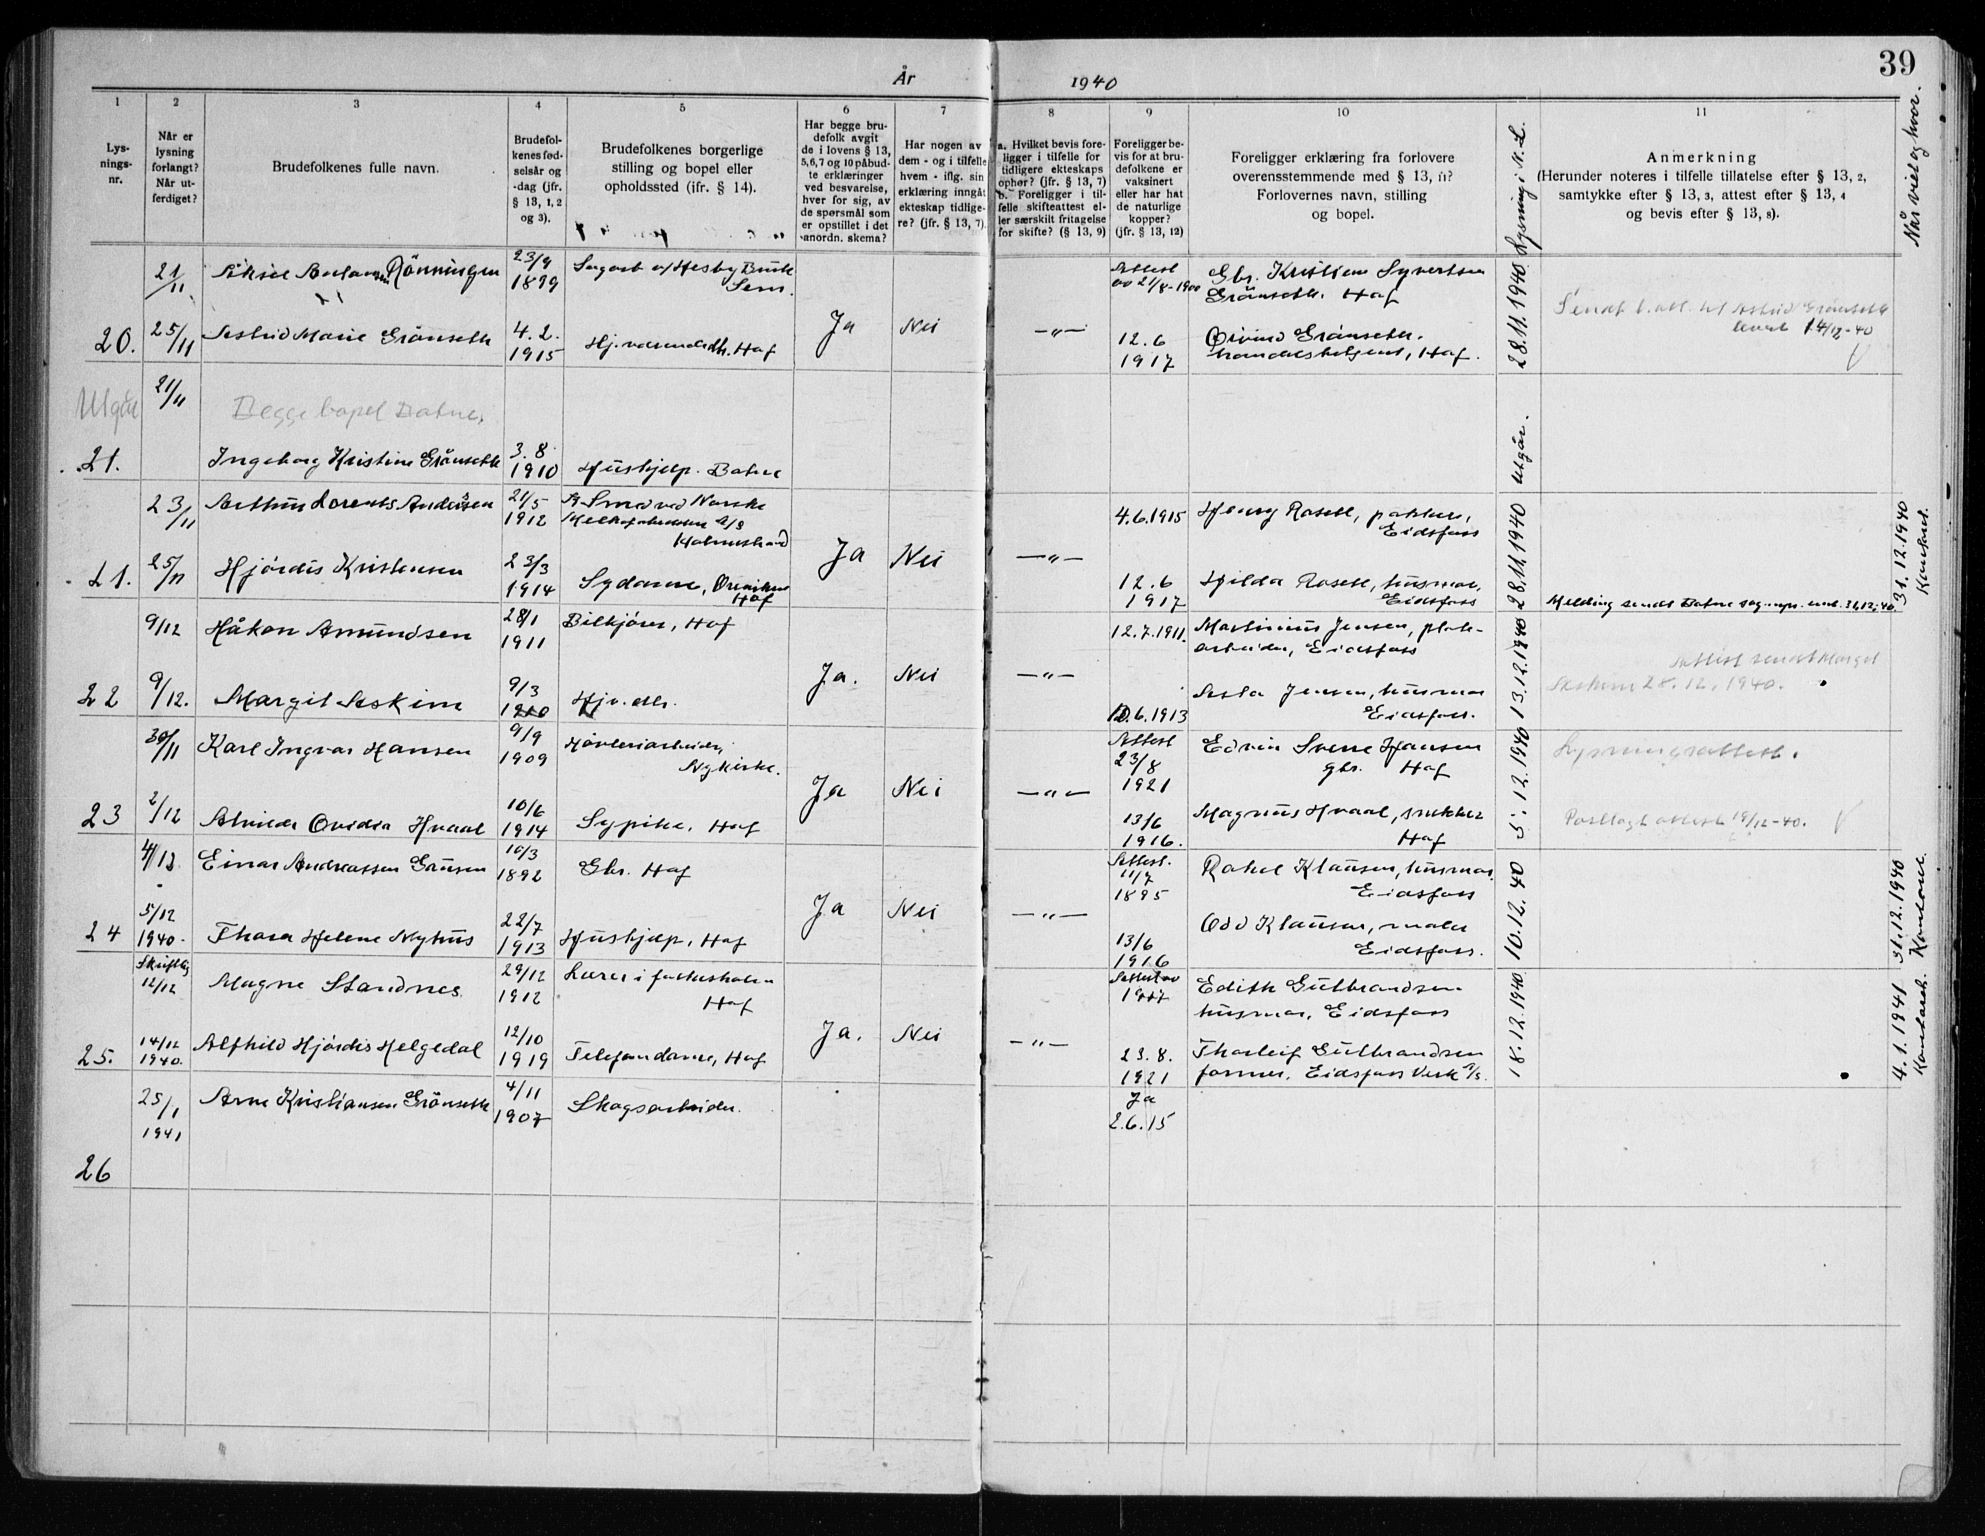 39
År 1940
1 2 3 4 5 6 7 8 9 10 11
Lys-
nings-
nr.
Når er
lysning
forlangt?
Når ut-
ferdiget?
Brudefolkenes fulle navn.
Brudefol-
kenes fød-
selsår og
-dag (jfr.
§ 13, 1, 2
og 3).
Brudefolkenes borgerlige
stilling og bopel eller
opholdssted (ifr. § 14).
Har begge bru-
defolk avgit
de i lovens § 13,
5,6,7 og 10 påbud-
te erklæringer
ved besvarelse,
hver for sig, av
de spørsmål som
er opstillet i det
anordn. skema?
Har nogen av
dem - og i tilfelle
hvem - iflg. sin
erklæring inngåt
ekteskap tidlige-
re? (jfr. § 13, 7).
a. Hvilket bevis fore-
ligger i tilfelle for
tidligere ekteskaps
ophør? (jfr. § 13, 7)
b. Foreligger i til-
felle skifteattest el-
ler særskilt fritagelse
for skifte? (§ 13, 9)
Foreligger be-
vis for at bru-
defolkene er
vaksinert
eller har hat
de naturlige
kopper?
(jfr. § 13, 12)
Foreligger erklæring fra forlovere
overensstemmende med § 13, 11?
Forlovernes navn, stilling
og bopel.
Lysning i N. L.
Anmerkning
(Herunder noteres i tilfelle tillatelse efter § 13, 2,
samtykke efter § 13, 3, attest efter § 13, 4
og bevis efter § 13, 8).
Når viet og hvor.
21/11 Rönningen 23/9 1899 Hesby Bruk Sem.
Attest 21/8-1900 Gbr. Kristian Syvertsen
Grönseth. Hof
20. 25/11 Astrid Marie Grönseth 4.2. 1915 Hj.værende dtr. Hof Ja Nei —"— 12.6 1917 Øivind Grönseth
handelsbetjent, Hof.
28.11.1940
Sendt til Astrid Grönseth
14/12-40
Utgår 21/11 Begge bopel Botne.
21. Ingeborg Kristine Grönseth 3.8. 1910 Hushjelp. Botne
Utgår.
23/11 Arthur Lorents Andersen 21/5 1912 Smed ved Norske
A/S
Holmestrand
4.6.1915 Henry Rosett, pakker,
Eidsfoss
21. 25/11 Hjördis Kristensen 23/3 1914 Sydame, Hof Ja Nei —"— 12.6 1917 Hilda Rosett, husmor,
Eidsfoss
28.11.1940
Melding sendt Botne 31.12.40
31.12.1940
Kontoret.
9/12 Håkon Amundsen 28/1 1911 Bilkjörer, Hof
12.7.1911. Martinius Jensen, plate-
arbeider, Eidsfoss
22 9/12. Margit Askim 9/3 1910 Hjv. dtr. Ja. Nei —"— 10.6.1913 Asta Jensen, husmor
Eidsfoss.
13.12.1940
Attest sendt Margit
Askim 28.12.1940.
30/11 Karl Ingvar Hansen 9/9 1909 Høvleriarbeider,
Nykirke.
Attest 23/8 1921 Edvin Sverre Hansen
gbr. Hof
23 2/12 Alvilde Ovidia Hvaal 10/6 1914 Sypike, Hof Ja Nei —"— 13/6 1916. Magnus Hvaal, snekker
Hof
5.12.1940
Lysningsattest.
Postlagt attest 19/12-40.
4/12 Einar Andreassen Grönsen 10/3 1892 Gbr. Hof
Attest. 11/7 1895 Rakel Klausen, husmor.
Eidsfoss
24 5/12 1940. Thora Helene Nyhus 22/7 1913 Hushjelp, Hof Ja Nei —"— 13/6 1916 Odd Klausen, maler
Eidsfoss.
10.12.40
31.12.1940
Kontoret.
Skriftlig 12/12 Magne Standnes 29/12 1912 Lærer i folkeskolen
Hof
1917 Edith Gulbrandsen
husmor, Eidsfoss
25. 14/12 1940. Alfhild Hjördis Helgedal 12/10 1919 Telefondame, Hof Ja. Nei —"— 23.8. 1921 Thorleif Gulbrandsen
former, Eidsfoss Verk A/S.
18.12.1940
4.1.1941
26 25/1 1941 Arne Kristiansen Grönseth 4/11 1907 Skogsarbeider. Ja 2.6.15